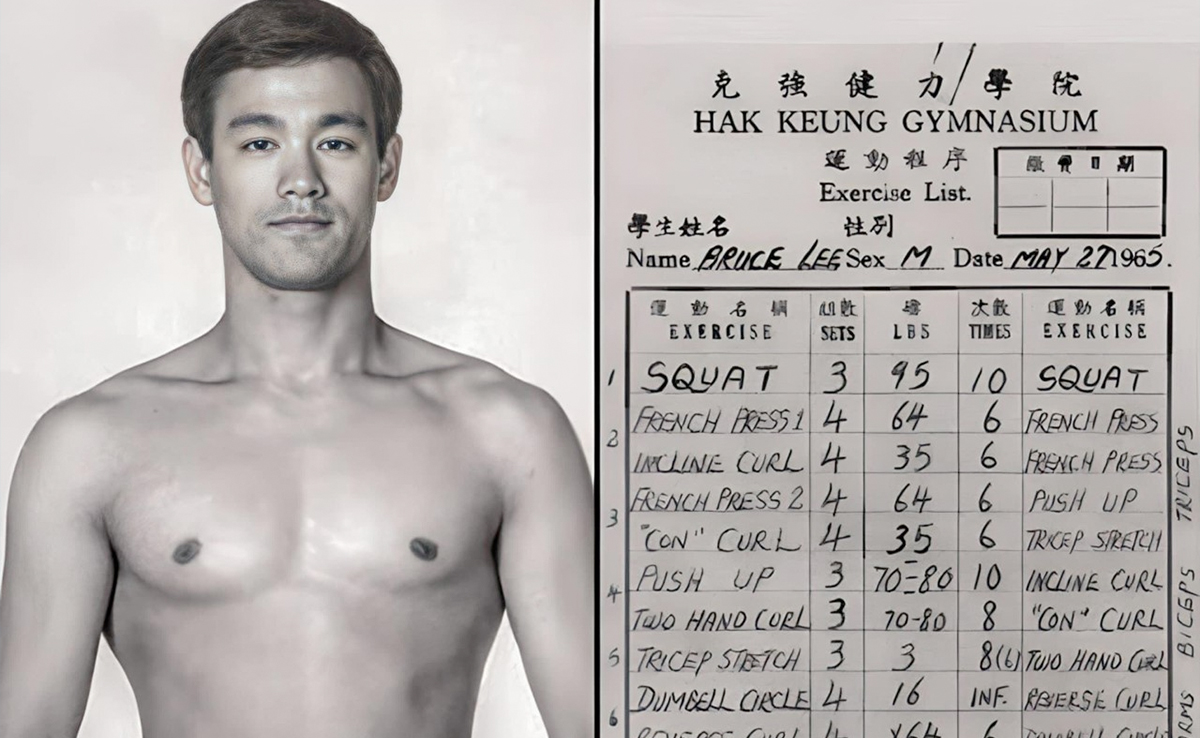 克強健力學院
HAK KEUNG GYMNASIUM
運動程序
Exercise List.
日期
學生姓名 性別
Name BRUCE LEE Sex M Date MAY 27 1965.
運動名稱 組數 磅 次數 運動名稱
EXERCISE SETS LBS TIMES EXERCISE
1 SQUAT 3 95 10 SQUAT
FRENCH PRESS 1 4 64 6 FRENCH PRESS
2 INCLINE CURL 4 35 6 FRENCH PRESS
FRENCH PRESS 2 4 64 6 PUSH UP
3 "CON" CURL 4 35 6 TRICEP STRETCH
PUSH UP 3 70-80 10 INCLINE CURL
4 TWO HAND CURL 3 70-80 8 "CON" CURL
5 TRICEP STRETCH 3 3 8(6) TWO HAND CURL
DUMBELL CIRCLE 4 16 INF. REVERSE CURL
6 REVERSE CURL 4 64 6
TRICEPS
BICEPS